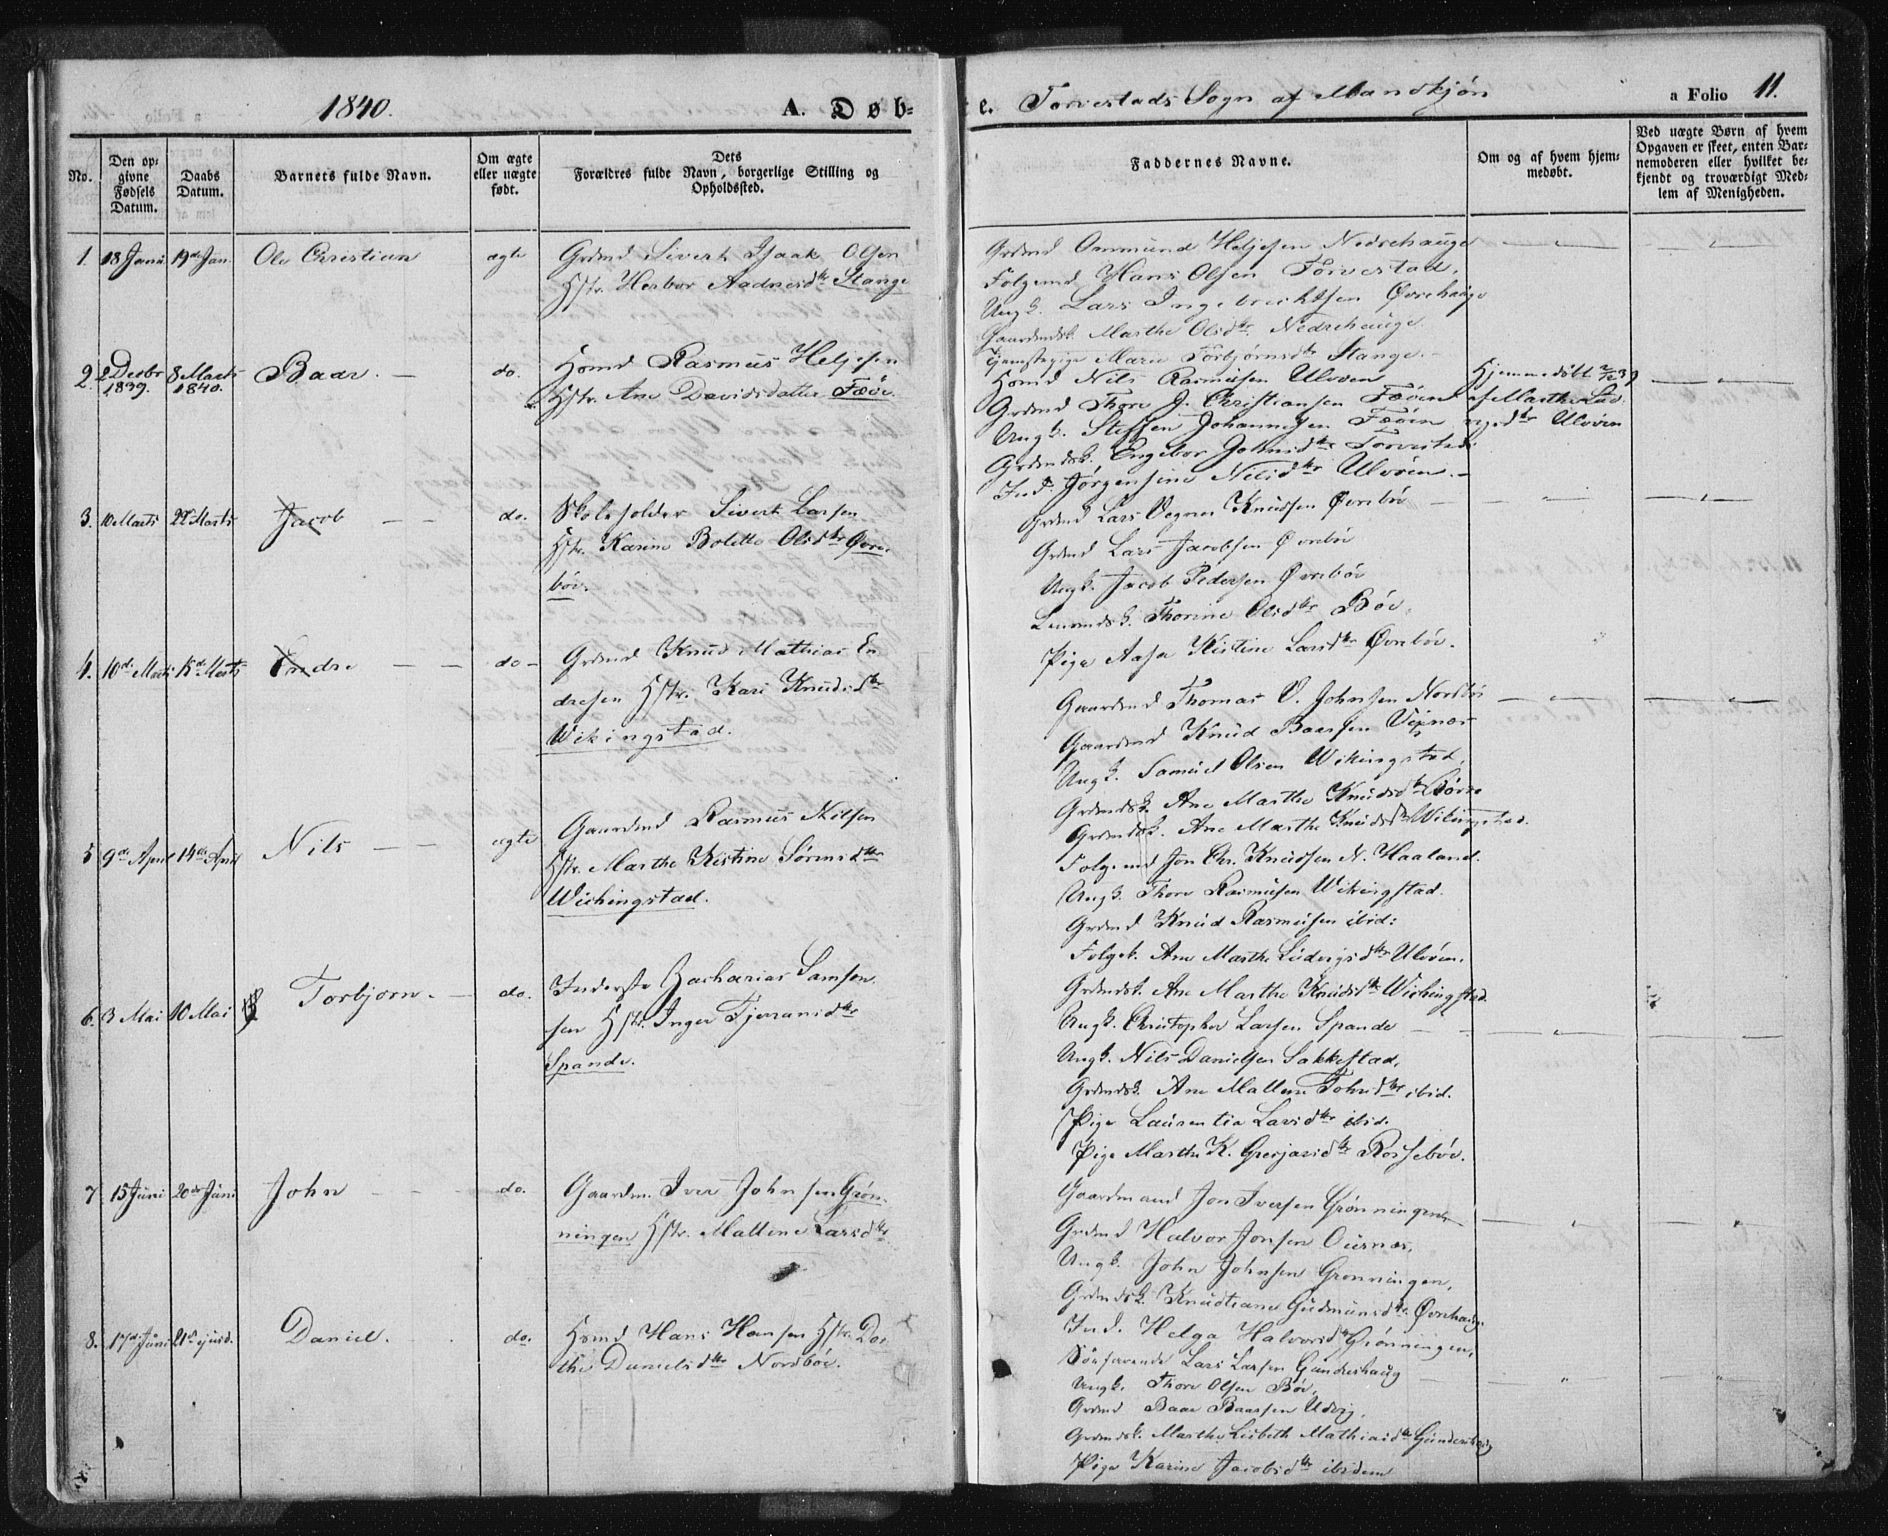 1840.
A. Døb-
No.
Den op-
givne
Fødsels
Datum.
Daabs
Datum.
Barnets fulde Navn.
Om ægte
eller uægte
født.
Dets
Forældres fulde Navn, borgerlige Stilling og
Opholdssted.
1. 18 Janu. 19de Jan. Ole Christian ægte Grdmd Sivert Isaak Olsen
Hstr. Herbor Aadnesdtr Stange
2. 2 Decbr 1839. 8 Marts 1840. Baar. do. Hsmd Rasmus Heljesen
Hstr. Ane Davidsdatter Fæøe.
3. 10 Marts 22 Marts Jacob do. Skoleholder Sivert Larsen
Hstr. Karine Bolette Olsdtr Øvre-
bøe.
4. 10de Marts 15de Marts Endre do Grdmd Knud Mathias En
dresen Hstr. Kari Knudsdtr
Wikingstad.
5 9de April 14de April Nils ægte Gaardmd Rasmus Nilsen
Hstr. Marthe Kistine Sørensdtr
Wichingstad.
6. 3 Mai 10 Mai Torbjørn. do. Inderste Zacharias Samson
sen Hstr. Inger Tjerransdtr
Spande.
7 15 Juni 20de Juni John do. Gaardm. Iver Johnsen Grøn-
ningen Hstr. Mallene Larsdtr
8. 17de Juni 21de ejusd. Daniel. do. Hsmd Hans Hansen Hstr. Dor
the Danielsdtr Nordbøe.
e. Torvestads Sogn af
a Folio 11.
Faddernes Navne.
Om og af hvem hjem-
medøbt.
Ved uægte Børn af hvem
Opgaven er skeet, enten Bar-
nemoderen eller hvilket be-
kjendt og troværdigt Med-
lem af Menigheden.
Grdmd Ommund Heljesen Nedrehauge
Folgemd Hans Olsen Torvestad,
Ungk. Lars Ingebrichtsen Øvrehauge
Gaardmdsk. Marthe Olsdtr Nedrehauge
Tjenstepige Marie Torbjørnsdtr Stange.
Hsmd Nils Rasmusen Ulvøen Hjemmedøbt
Grdmd Thore J. Christiansen Fæøen af Marthe Lud
Ungk. Steffen Johannesen Fæøen vigsdtr Ulvøen
Grdmdsk. Engebor Johnsdtr Torvestad
Ind. Jørgensine Nilsdtr Ulvøen.
Grdmd Lars Vegner Knudsen Øvrebø
Grdmd Lars Jacobsen Øvrebøe
Ungk. Jacob Pedersen Øvrebøe
Thorine Olsdtr Bøe.
Pige Aasa Kistine Larsdtr Øvrebøe.
Gaardmd Thomas O. Johnsen Nordbø
Gaardmd Knud Baarsen Vixnes
Ungk. Samuel Olsen Wikingstad.
Grdmdsk. Ane Marthe Knudsdtr
Grdmdsk. Ane Marthe Knudsdtr Wikingstad.
Folgemd Jon Chr. Knudsen N. Haaland.
Ungk. Thore Rasmusen Wikingstad.
Grdmd Knud Rasmusen ibid:
Folgek. Ane Marthe Ludvigsdtr Ulvøen.
Grdmdsk. Ane Marthe Knudsdtr Wichingstad
Ungk. Christopher Larsen Spande
Ungk. Nils Danielsen Sakkestad.
Grdmdsk. Ane Mallene Johnsdtr ibid.
Pige Laurentia Larsdtr ibid.
Pige Marthe K. Gresjarsdtr Rossebøe.
Gaardmand Jon Iversen Grønningen
Grdmd Halvor Jonsen Ousnes,
Ungk. John Johnsen Grønningen,
Grdmdsk. Knudtiane Gudmunsdtr Øvrehaug.
Ind. Helga Halvorsdtr Grønningen,
Søefarende Lars Larsen Gundershaug
Ungk. Thore Olsen Bøe.
Grdmd Baar Baarsen Udvig,
Grdmdsk. Marthe Lisbeth Mathiasdtr Gundershaug
Pige Karine Jacobsdtr ibidem